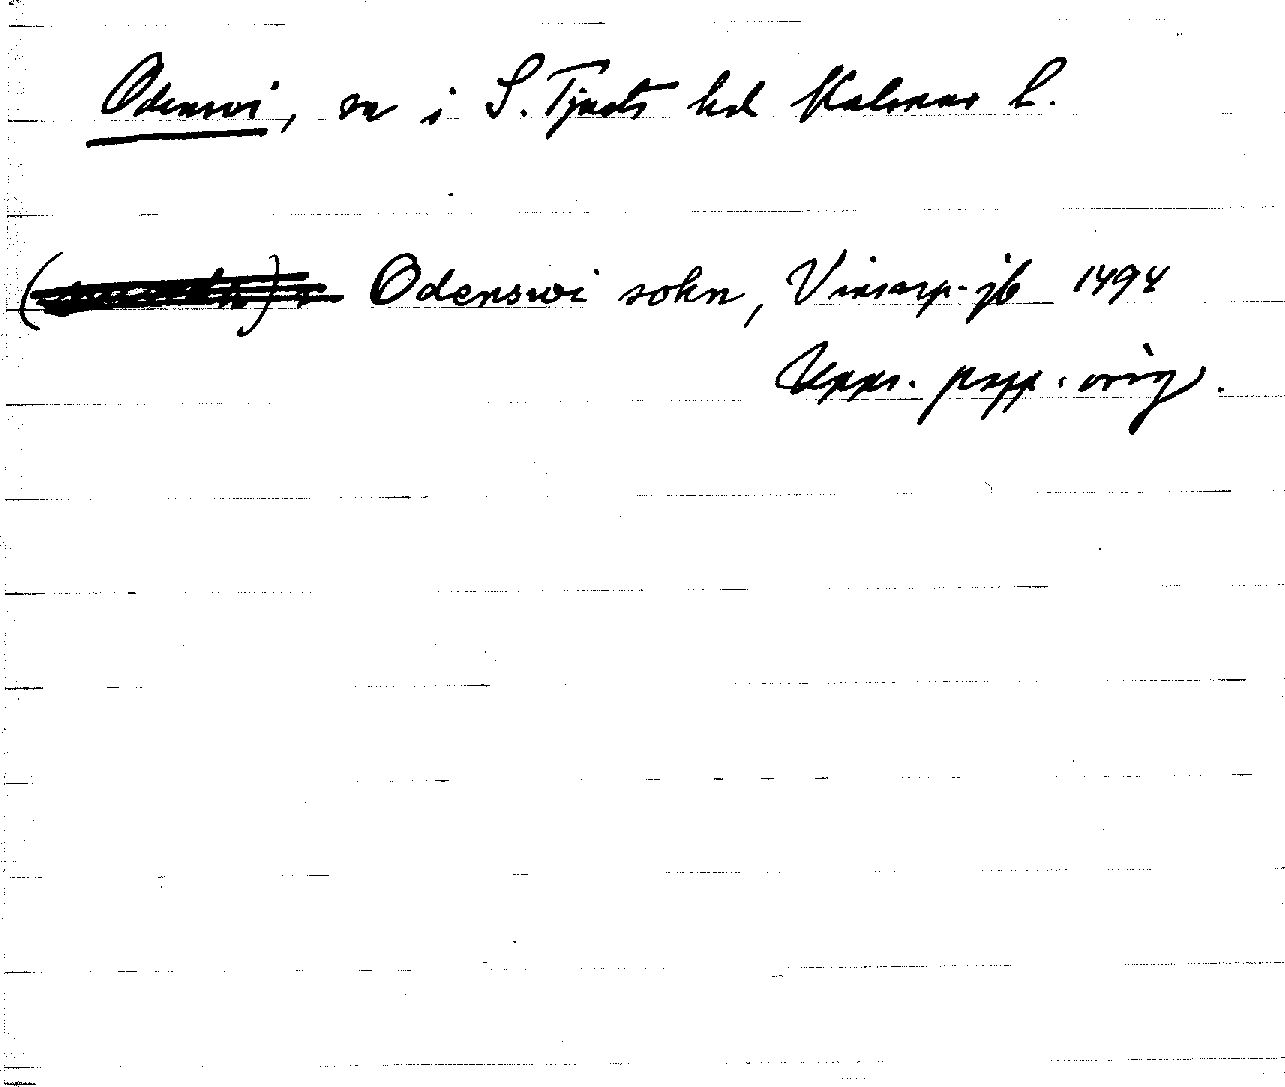 Odenswi, sn i S. Tjusts hd Kalmar l.
Odenswi sokn, Vinsarp-jb 1494
Upps. papp. orig.